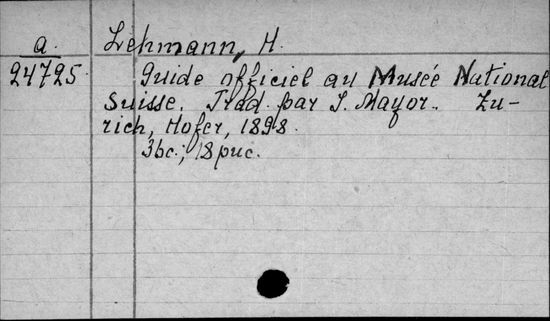 a. Lehmann, H.
24725. Guide officiel au Musée National
suisse. Trad. par J. Mayor. Zu-
rich, Hofer, 1898.
36c.; 18рис.